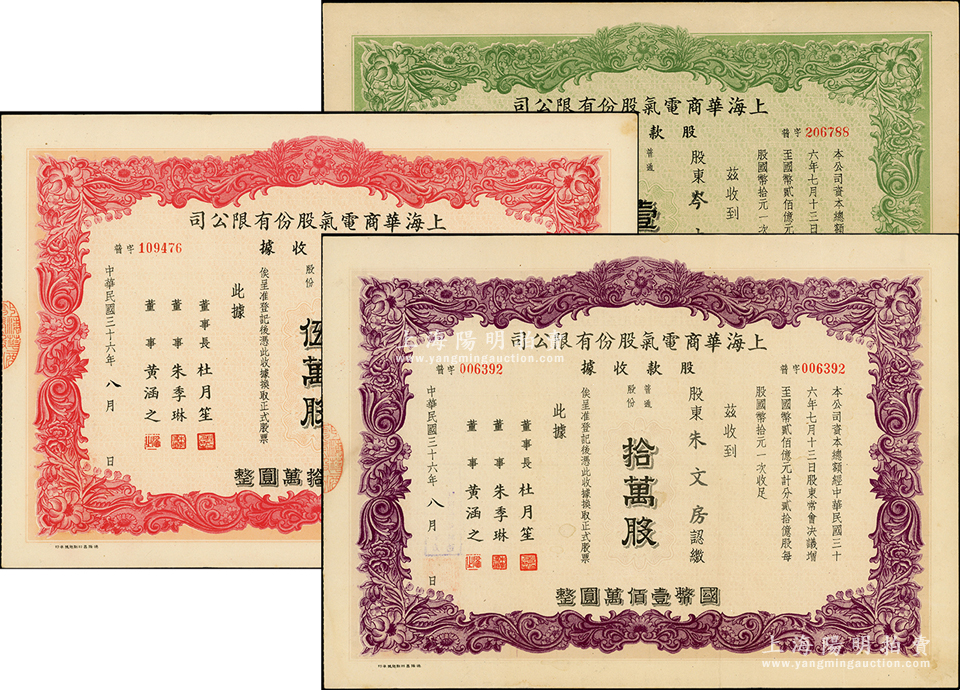 上海華商電氣股份有限公司
股款
普字 206788
本公司資本總額
六年七月十三日
至國幣貳佰億元
股國幣拾元一次
茲收到
股東岑
普通
壹
上海華商電氣股份有限公司
收據
普字 109476
股份
伍萬股
俟呈准登記後憑此收據換取正式股票
此據
董事長 杜月笙
董事 朱季琳
董事 黃涵之
中華民國三十六年八月 日
拾萬圓整
上海華商電氣股份有限公司
股款收據
普字 006392
普字 006392
本公司資本總額經中華民國三十
六年七月十三日股東常會決議增
至國幣貳佰億元計分貳拾億股每
股國幣拾元一次收足
茲收到
股東朱文房認繳
普通
股份
拾萬股
俟呈准登記後憑此收據換取正式股票
此據
董事長 杜月笙
董事 朱季琳
董事 黃涵之
中華民國三十六年八月 日
國幣壹佰萬圓整
上海陽明拍賣
www.yangmingauction.com
上海陽明拍賣
www.yangmingauction.com